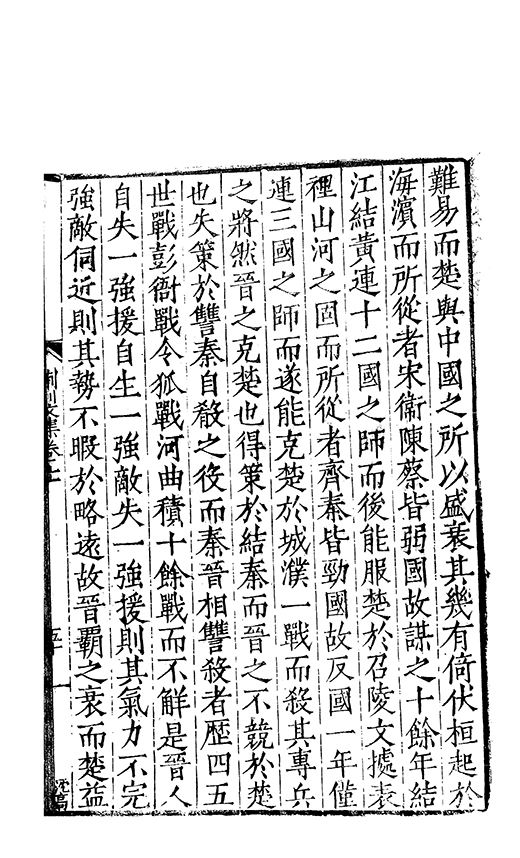 難易而楚與中國之所以盛衰其幾有倚伏桓起於
海濱而所從者宋衞陳蔡皆弱國故謀之十餘年結
江結黃連十二國之師而後能服楚於召陵文㨿表
裡山河之固而所從者齊秦皆勁國故反國一年僅
連三國之師而遂能克楚於城濮一戰而殺其專兵
之將然晉之克楚也得策於結秦而晉之不競於楚
也失策於讐秦自殽之役而秦晉相讐殺者歴四五
世戰彭衙戰令狐戰河曲積十餘戰而不觧是晉人
自失一強援自生一強敵失一強援則其氣力不完
強敵伺近則其勢不暇於略遠故晉覇之衰而楚益
荆川文集卷十